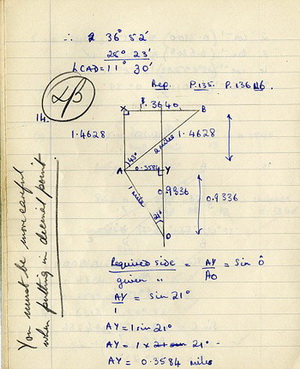 ∴ 36° 52'
25° 23'
∠CAD = 11° 30'
Rep. P.135. P.136 N6.
αβ
14.
X 1.3640. B
1.4628
1.4628
2 miles
43°
A 0.3584 Y
1 mile
0.9336
0.9336
21°
O
Required side = AY/AO = Sin Ô
given "
AY/1 = sin 21°
AY = 1 sin 21°
AY = 1 × 21°
AY = 0.3584 miles
You must be more careful
when putting in decimal point